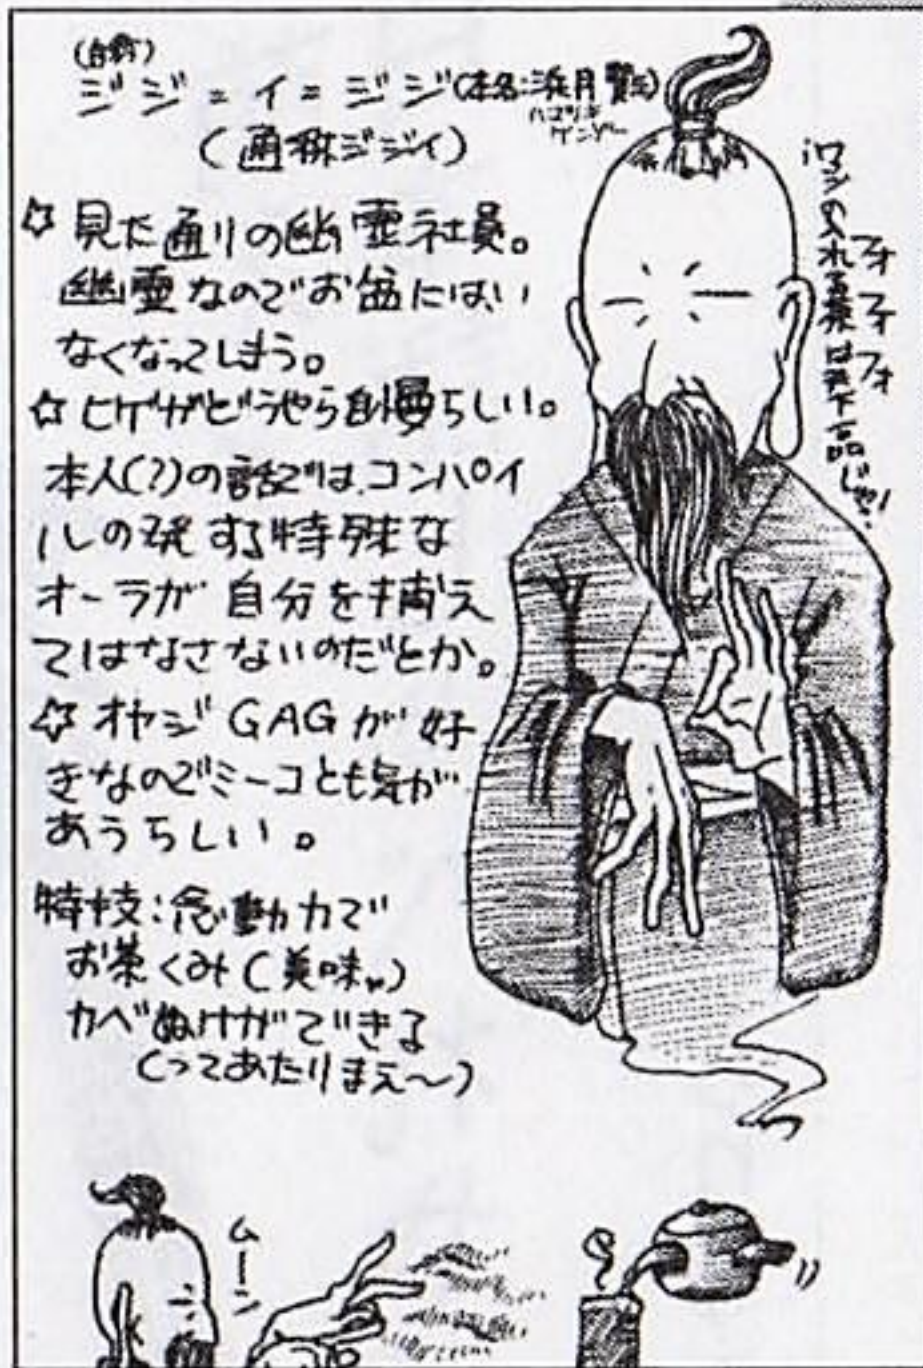 (自称)
ジジ=イ=ジジ(本名:浜月賢三)
ハマツキ
ケンゾー
(通称ジジイ)
☆見た通りの幽霊社員。
幽霊なのでお盆にはい
なくなってしまう。
☆ヒゲがどうやら自慢らしい。
本人(?)の話では、コンパイ
ルの発する特殊な
オーラが自分を捕え
てはなさないのだとか。
☆オヤジGAGが好
きなのでミーコとも気が
あうらしい。
特技:念動力で
お茶くみ(美味♥)
カベぬけができる
(ってあたりまえ〜)
フォフォフォ
ワシの入れる茶は天下一品じゃ!
ムーン